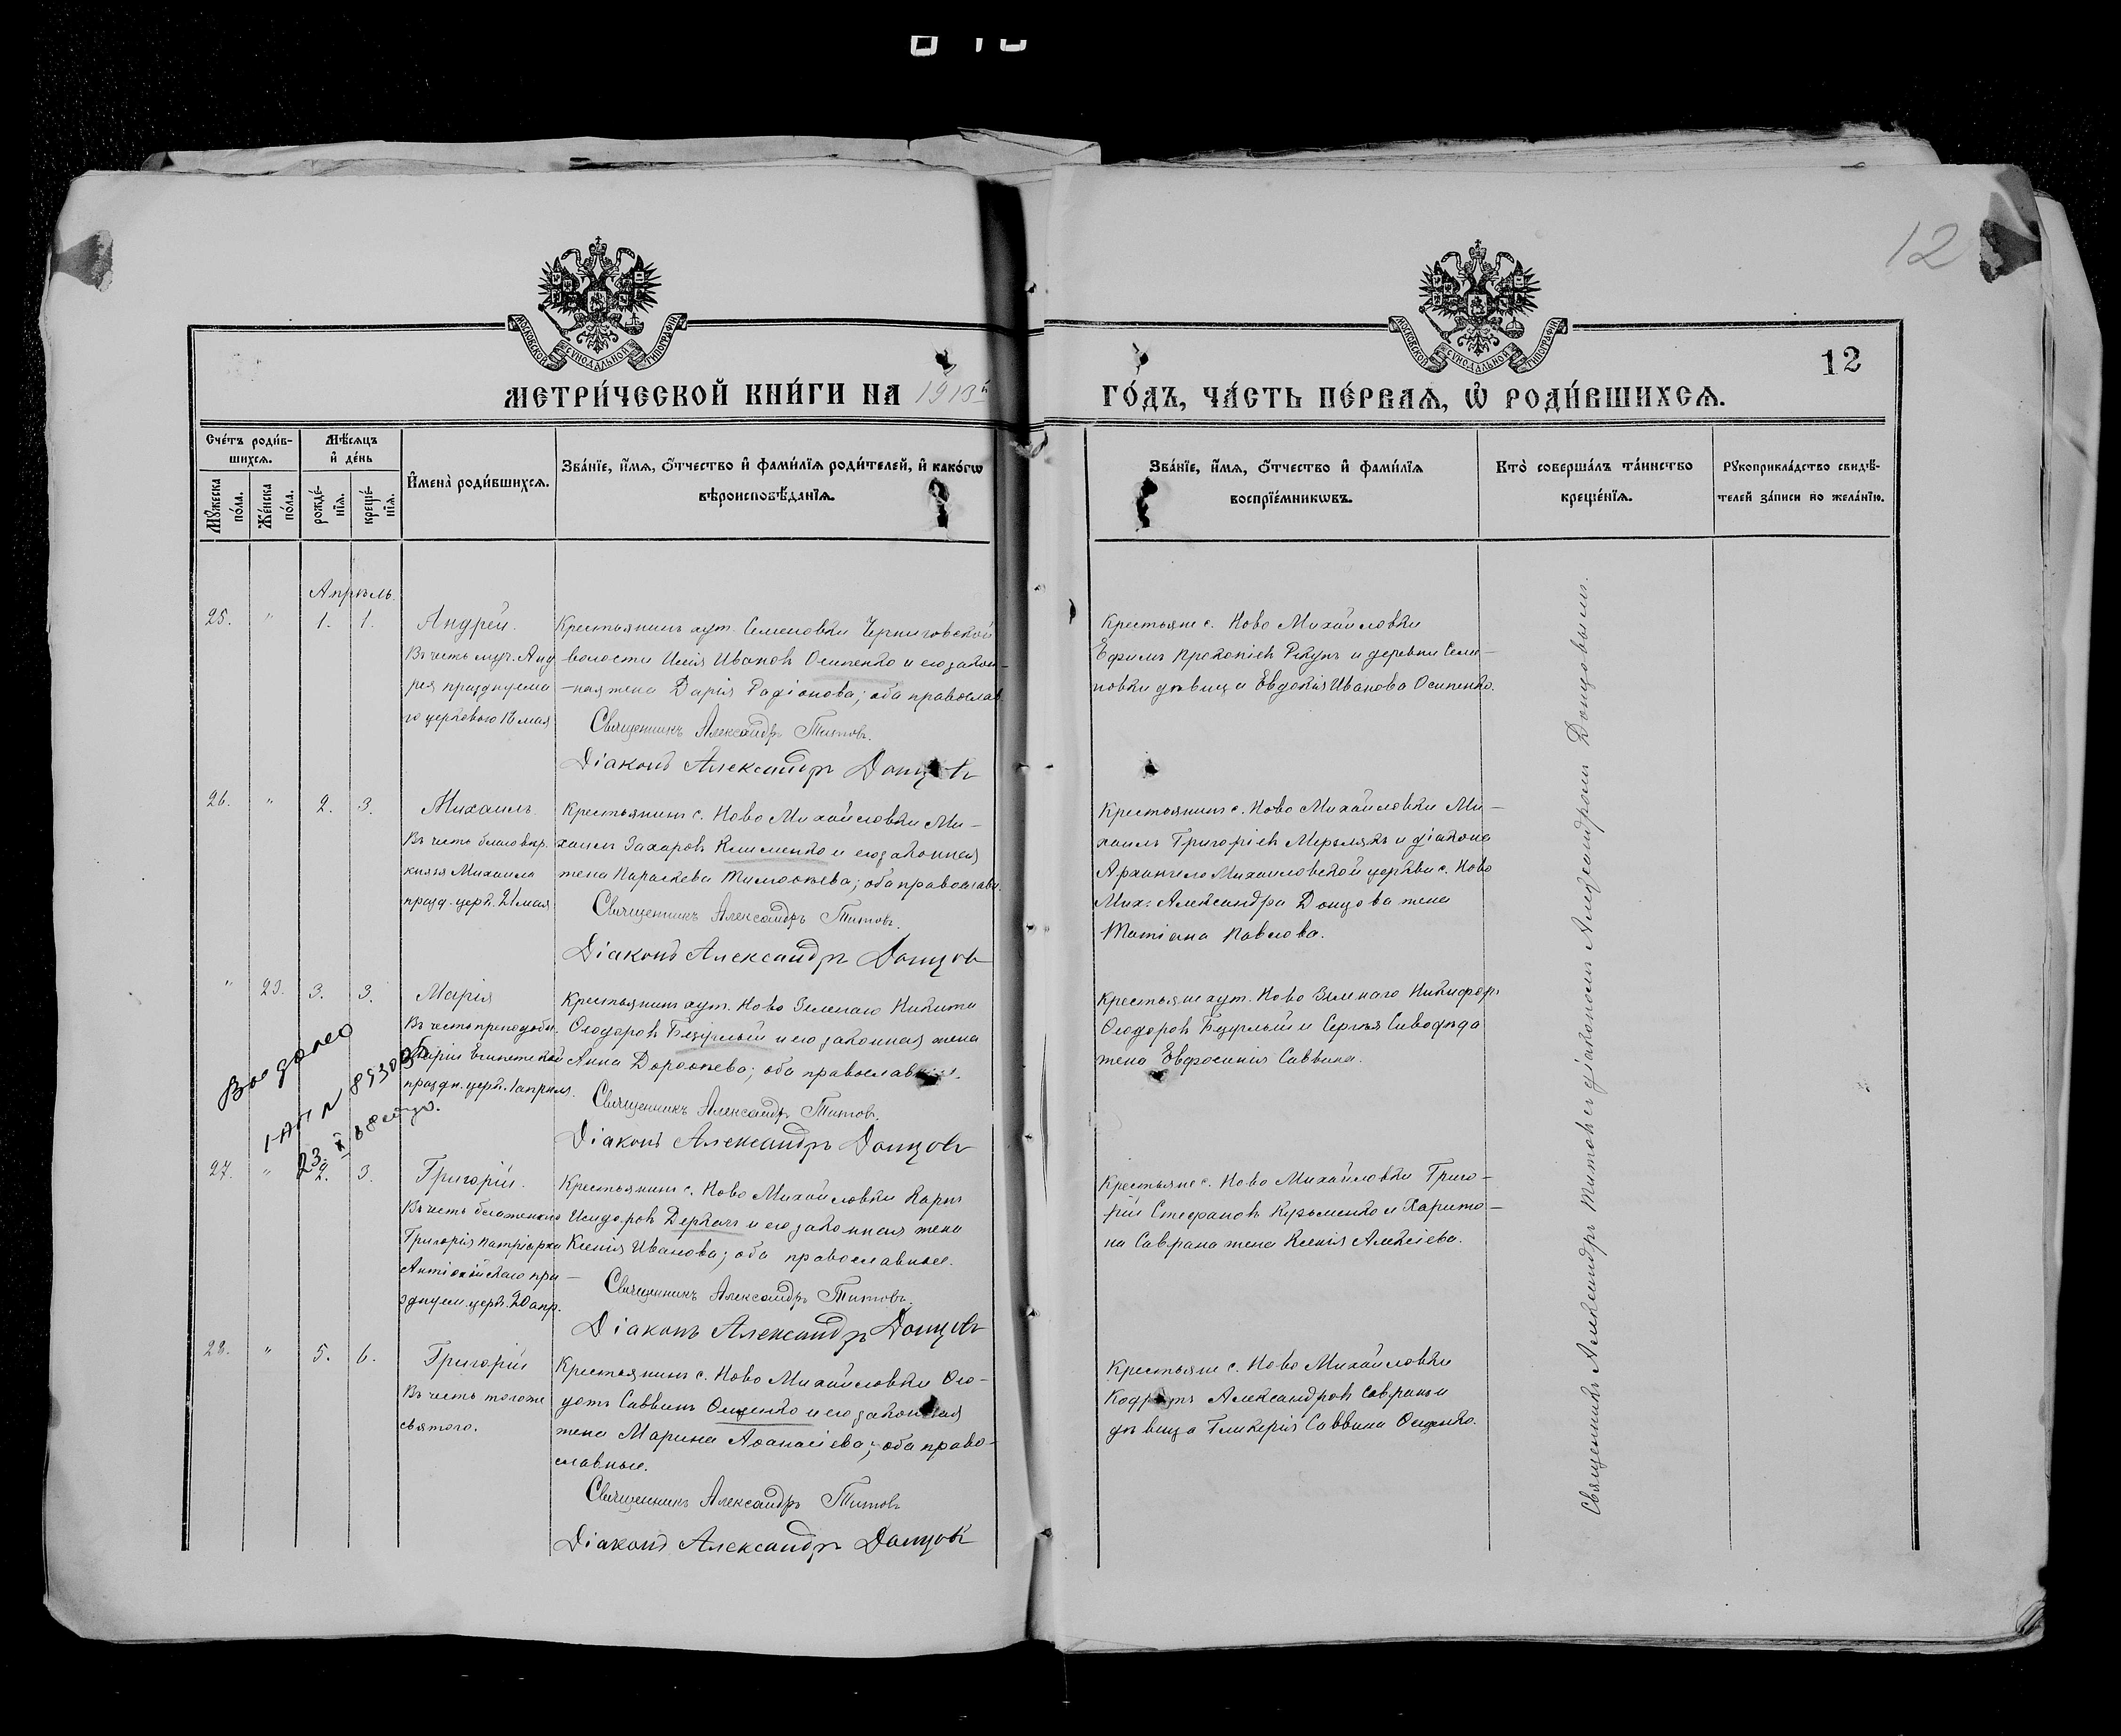 12
МОСКОВСКОЙ СУНОДАЛЬНОЙ ТИПОГРАФІИ
МОСКОВСКОЙ СУНОДАЛЬНОЙ ТИПОГРАФІИ
12
МЕТРИ́ЧЕСКОЙ КНИ́ГИ НА 1913й ГО́ДЪ, ЧА́СТЬ ПЕ́РВАѦ, Ѡ҆ РОДИ́ВШИХСѦ.
Сче́тъ роди́вшихсѧ.
Мꙋ́жеска по́ла.
Же́нска по́ла.
Мѣ́сѧцъ и҆ де́нь
рожде́нїѧ.
креще́нїѧ.
И҆мена̀ роди́вшихсѧ.
Зва́нїе, и҆́мѧ, ѻ҆́тчество и҆ фами́лїѧ роди́телей, и҆ како́гѡ
вѣроисповѣ́данїѧ.
Зва́нїе, и҆́мѧ, ѻ҆́тчество и҆ фами́лїѧ
воспрїе́мникѡвъ.
Кто̀ соверша́лъ та́инство
креще́нїѧ.
Рꙋкоприкла́дство свидѣ́-
телей за́писи по жела́нїю.
Апрѣль.
25. " 1. 1.
Андрей.
Въ честь муч. Анд
рея празднуема
го церковью 18 мая
Крестьянинъ хут. Семеновки Черниговской
волости Илія Ивановъ Осипенко и его закон-
-ная жена Дарія Радіонова; оба православ
Священникъ Александръ Титовъ.
Діаконъ Александръ Донцовъ
Крестьяне с. Ново Михайловки
Ефимъ Прокопіевъ Рекунъ и деревни Семе-
новки дѣвица Евдокія Иванова Осипенко.
26. " 2. 3.
Михаилъ.
Въ честь благовѣр.
князя Михаила
празд. церк. 21 мая
Крестьянинъ с. Ново Михайловки Ми-
хаилъ Захаровъ Клименко и его законная
жена Параскева Тимоѳеева; оба православн.
Священникъ Александръ Титовъ.
Діаконъ Александръ Донцовъ
Крестьянинъ с. Ново Михайловки Ми-
хаилъ Григоріевъ Мерзлякъ и діакона
Архангело Михайловской церкви с. Ново
Мих: Александра Донцова жена
Татіана Павлова.
" 23. 3. 3.
Марія
Въ честь преподобн.
Маріи Египетской
праздн. церк. 1 апрѣля.
Крестьянинъ хут. Ново Зеленаго Никита
Ѳеодоровъ Бецуглый и его законная жена
Анна Дороѳеева; оба православные.
Священникъ Александръ Титовъ.
Діаконъ Александръ Донцовъ
Крестьяне хут. Ново Зеленаго Никифоръ
Ѳеодоровъ Бецуглый и Сергѣя Сиводѣда
жена Евфросинія Саввина.
Выдано
I-АП №
23. X 68 года.
27. " 2. 3.
Григорій.
Въ честь блаженнаго
Григорія патріарха
Антіохійскаго пра-
зднуем. церк. 20 апр.
Крестьянинъ с. Ново Михайловки Карпъ
Исидоровъ Деркачъ и его законная жена
Ксенія Иванова; оба православные.
Священникъ Александръ Титовъ.
Діаконъ Александръ Донцовъ
Крестьяне с. Ново Михайловки Григо-
рій Стефановъ Кузьменко и Харито-
на Саврана жена Ксенія Алексіева.
28. " 5. 6.
Григорій
Въ честь тогоже
святого.
Крестьянинъ с. Ново Михайловки Ѳео-
дотъ Саввинъ Ощенко и его законная
жена Марина Аѳанасіева; оба право-
славные.
Священникъ Александръ Титовъ
Діаконъ Александръ Донцовъ
Крестьяне с. Ново Михайловки
Кодратъ Александровъ Савранъ и
дѣвица Гликерія Саввина Ощенко.
Священникъ Александръ Титовъ съ діакономъ Александромъ Донцовымъ.